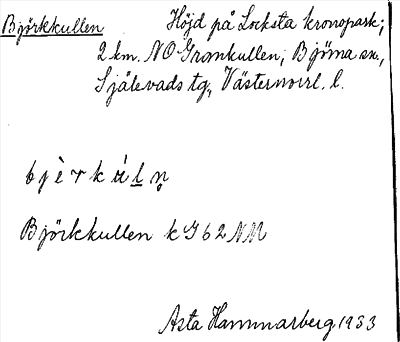 Björkkullen Höjd på Locksta kronopark;
2 km. NO Gromkullen, Björna sn.,
Själevads tg., Västernorrl. l.
b j è r k ú l n̥
Björkkullen k G 6 2 NM
Asta Hammarberg 1933